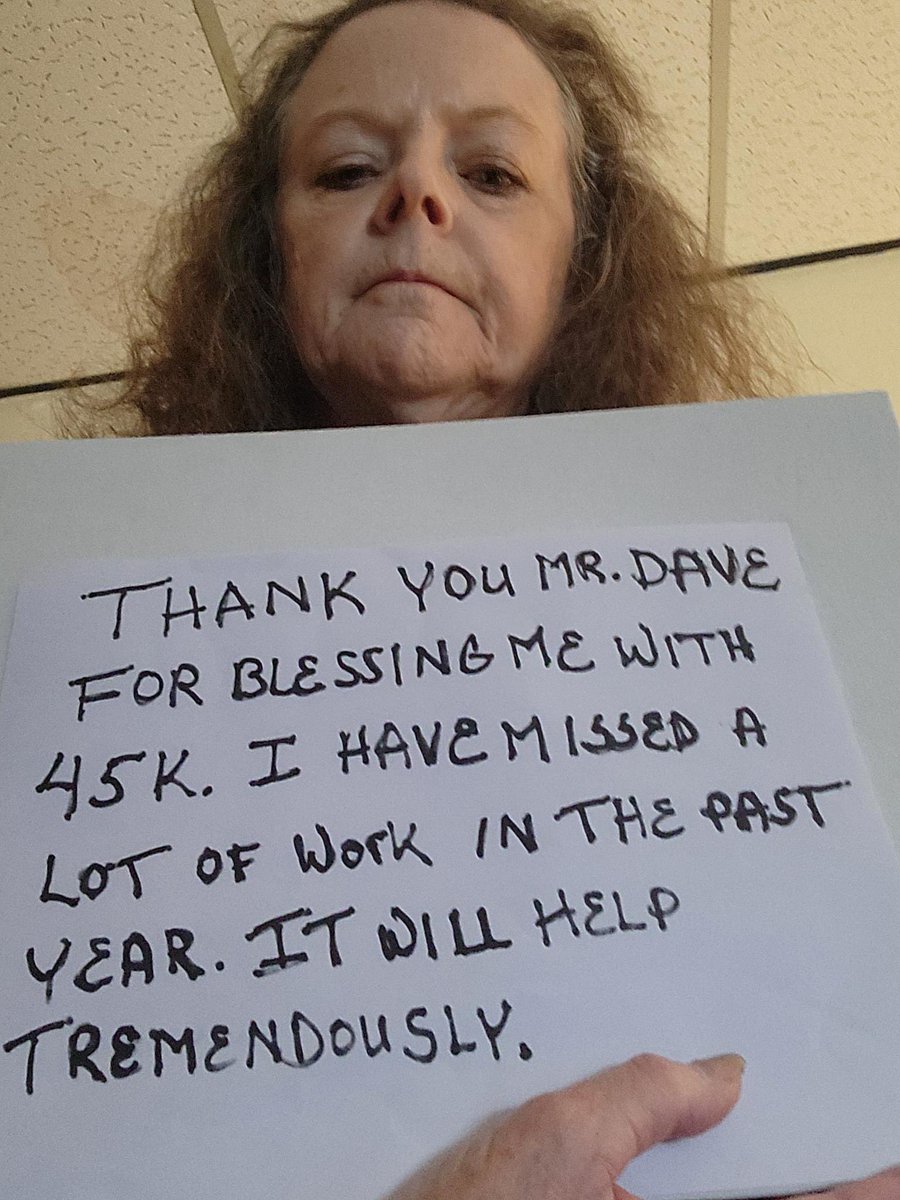 THANK YOU MR. DAVE
FOR BLESSING ME WITH
45K. I HAVE MISSED A
LOT OF WORK IN THE PAST
YEAR. IT WILL HELP
TREMENDOUSLY.